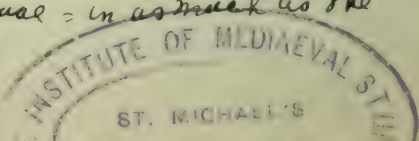 = in as much as the
INSTITUTE OF MEDIAEVAL
ST. MICHAEL'S